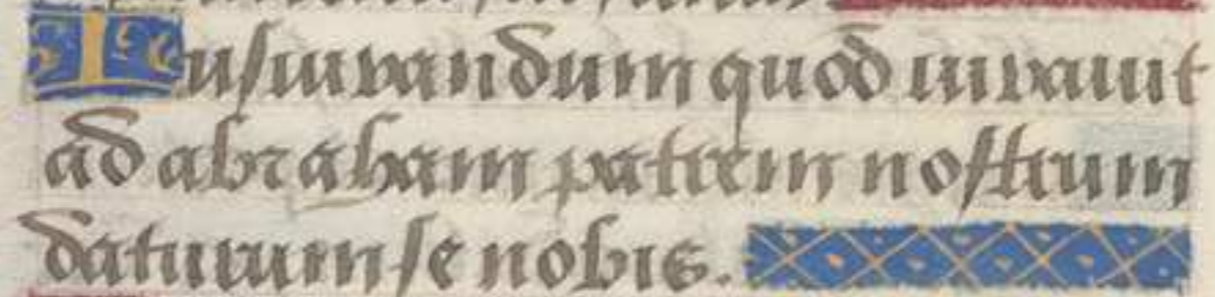 Iusiurandum quod iuravit
ad abraham patrem nostrum
daturum se nobis.